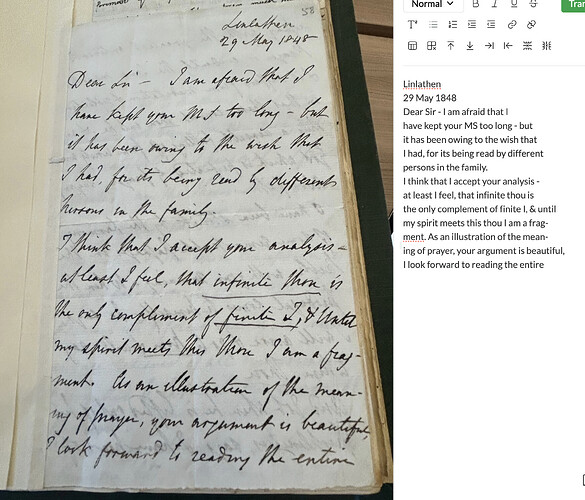 58
Linlathen
29 May 1848
Dear Sir – I am afraid that I
have kept your MS too long – but
it has been owing to the wish that
I had, for its being read by different
persons in the family.
I think that I accept your analysis –
at least I feel, that infinite thou is
the only compliment of finite I, & until
my spirit meets this thou I am a frag-
ment. As an illustration of the mean-
ing of prayer, your argument is beautiful,
I look forward to reading the entire
Normal
B I U S
Tran
Linlathen
29 May 1848
Dear Sir - I am afraid that I
have kept your MS too long - but
it has been owing to the wish that
I had, for its being read by different
persons in the family.
I think that I accept your analysis -
at least I feel, that infinite thou is
the only complement of finite I, & until
my spirit meets this thou I am a frag-
ment. As an illustration of the mean-
ing of prayer, your argument is beautiful,
I look forward to reading the entire